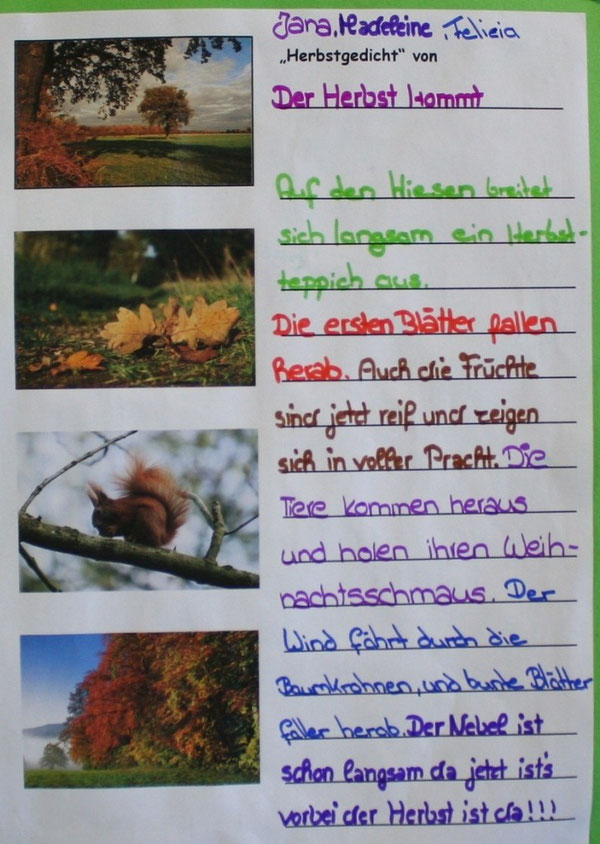 Jana, Madeleine, Felicia
„Herbstgedicht“ von
Der Herbst kommt
Auf den Wiesen breitet
sich langsam ein Herbst-
teppich aus.
Die ersten Blätter fallen
herab. Auch die Früchte
sind jetzt reif und zeigen
sich in voller Pracht. Die
Tiere kommen heraus
und holen ihren Weih-
nachtsschmaus. Der
Wind fährt durch die
Baumkrohnen, und bunte Blätter
faller herab. Der Nebel ist
schon langsam da jetzt ist's
vorbei der Herbst ist da!!!